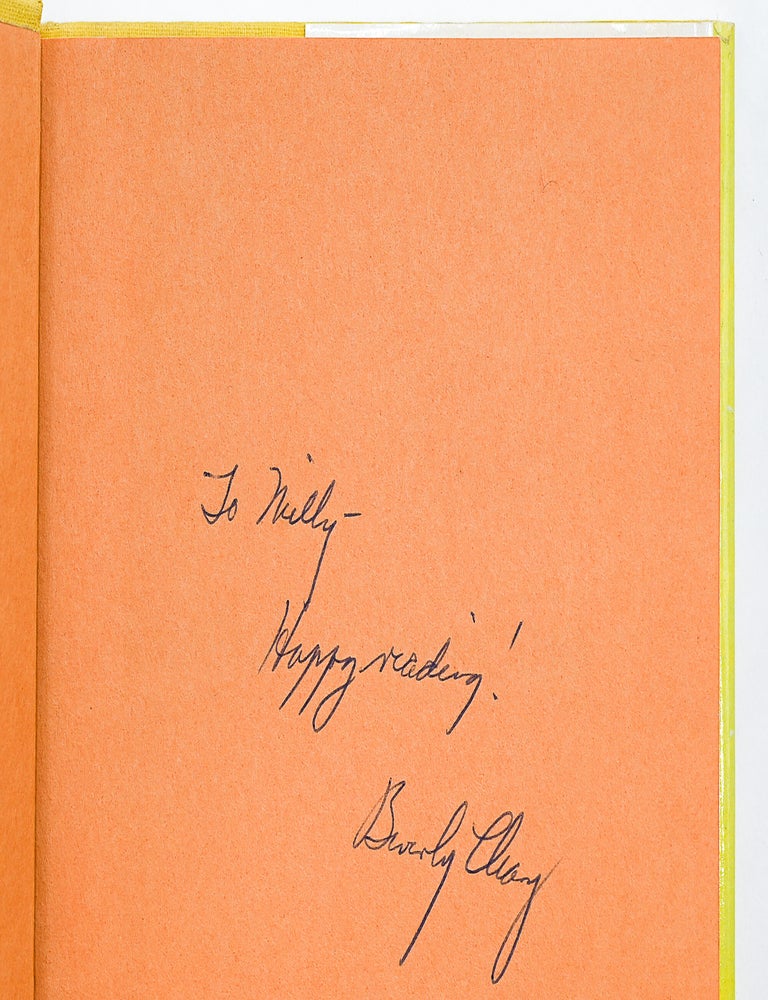 To Willy-
Happy reading!
Beverly Cleary